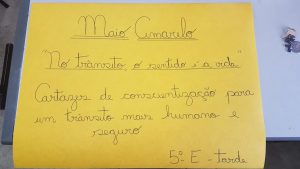 Maio Amarelo
"No trânsito o sentido é a vida"
Cartazes de conscientização para
um trânsito mais humano e
seguro
5º E - tarde